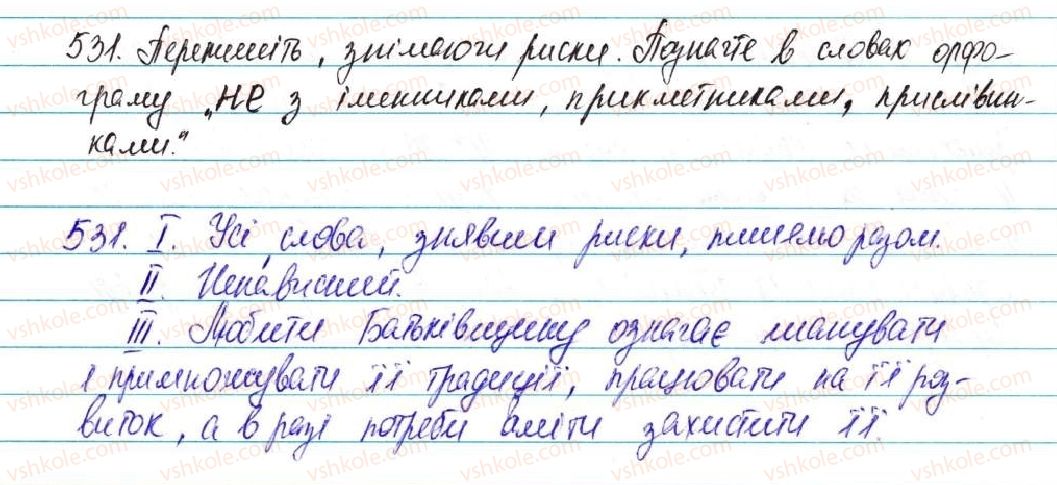 531. Перепишіть, знімаючи риски. Позначте в словах орфо-
граму „не з іменниками, прикметниками, прислівни-
ками."
531. І. Усі слова, знявши риски, пишемо разом.
ІІ. Ненависний.
ІІІ. Любити Батьківщину означає шанувати
і примножувати її традиції, працювати на її роз-
виток, а в разі потреби вміти захистити її.